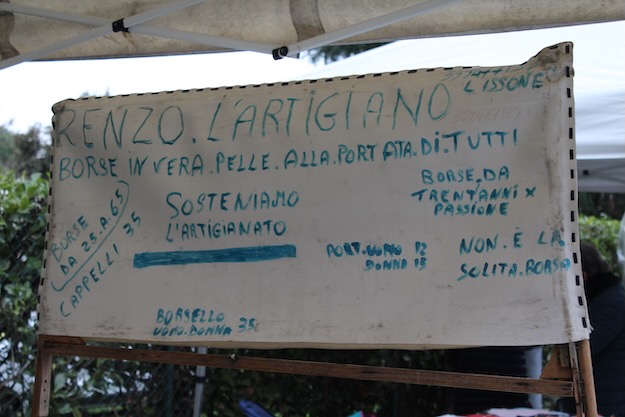 LISSONE
RENZO.L'ARTIGIANO
BORSE IN VERA.PELLE.ALLA.PORTATA.DI.TUTTI
BORSE.DA
TRENT'ANNI X
PASSIONE
SOSTENIAMO
L'ARTIGIANATO
BORSE
DA 25.A.65
CAPPELLI 35
PORT.UOMO 12
DONNA 15
NON.È LA
SOLITA.BORSA
BORSELLO
UOMO.DONNA 35